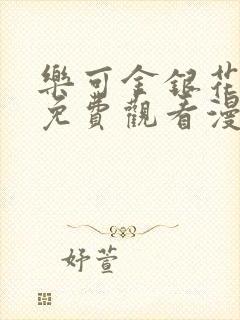 樂可金銀花
免費觀看漫
妤萱